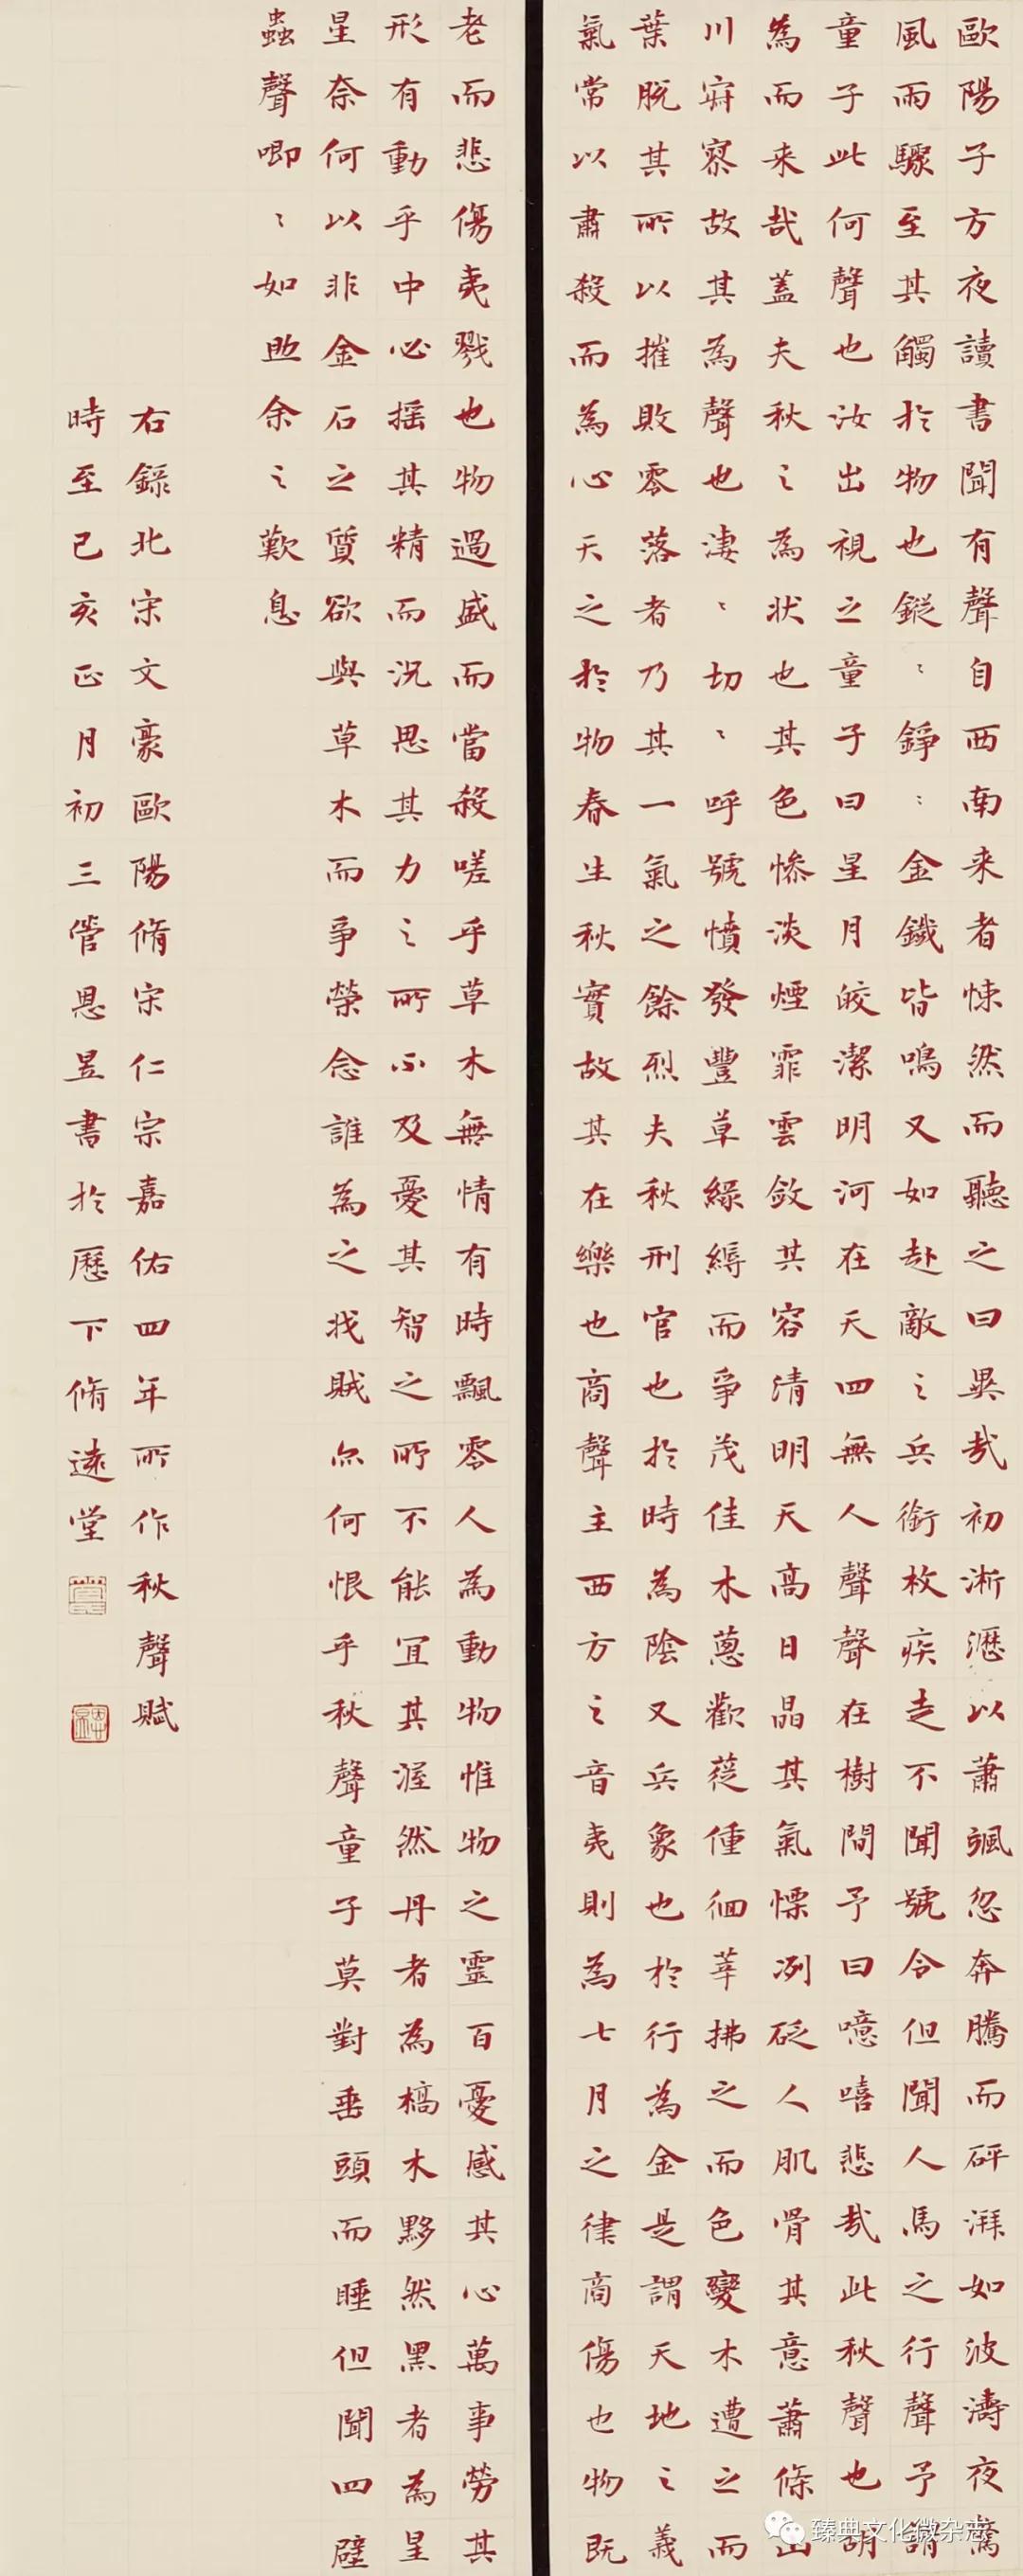 歐陽子方夜讀書聞有聲自西南来者悚然而聽之曰異哉初淅瀝以蕭颯忽奔騰而砰湃如波濤夜驚
風雨驟至其觸於物也鏦〻錚〻金鐵皆鳴又如赴敵之兵銜枚疾走不聞號令但聞人馬之行聲予謂
童子此何聲也汝出視之童子曰星月皎潔明河在天四無人聲聲在樹間予曰噫嘻悲哉此秋聲也胡
為而来哉蓋夫秋之為狀也其色慘淡煙霏雲斂其容清明天高日晶其氣慄冽砭人肌骨其意蕭條山
川寂寥故其為聲也淒〻切〻呼號憤發豐草綠縟而爭茂佳木蔥歡蓯偅徊莘拂之而色變木遭之而
葉脱其所以摧敗零落者乃其一氣之餘烈夫秋刑官也於時為陰又兵象也於行為金是謂天地之義
氣常以肅殺而為心天之於物春生秋實故其在樂也商聲主西方之音夷則為七月之律商傷也物既
老而悲傷夷戮也物過盛而當殺嗟乎草木無情有時飄零人為動物惟物之靈百憂感其心萬事勞其
形有動乎中必摇其精而況思其力之所不及憂其智之所不能宜其渥然丹者為槁木黟然黑者為星
星奈何以非金石之質欲與草木而爭榮念誰為之戕賊亦何恨乎秋聲童子莫對垂頭而睡但聞四壁
蟲聲唧〻如助余之歎息
右錄北宋文豪歐陽脩宋仁宗嘉佑四年所作秋聲賦
時至己亥正月初三管恩昱書於歷下脩遠堂
臻典文化微杂志